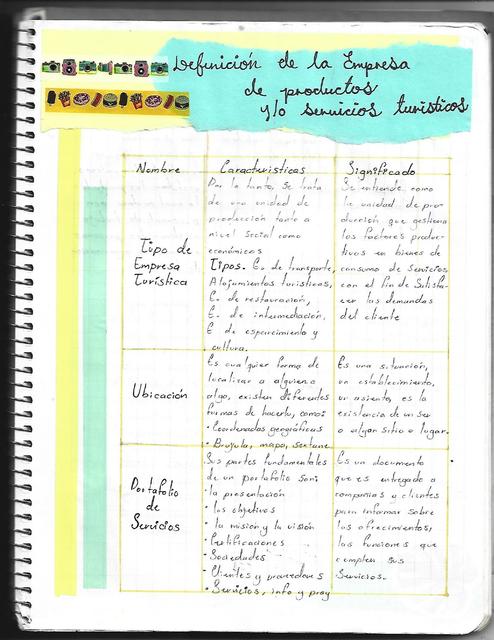 Definición de la Empresa
de productos
y/o servicios turisticos
Nombre
Caracteristicas
Significado
Tipo de
Empresa
Turística
Por lo tanto, se trata
de una unidad de
producción tanto a
nivel Social como
económicos
Tipos. E. de transporte,
Alojamientos turisticos,
E. de restauración,
E. de intermediación,
E de esparcimiento y
cultura.
Se entiende como
la unidad de pro-
ducción que gestiona
los factores produc-
tivos en bienes de
consumo de servicios,
con el fin de Satisfa-
cer las demandas
del cliente
Ubicación
Es cualquier forma de
localizar a alguien o
algo, existen diferentes
formas de hacerlo, como:
• Coordenadas geográficas
• Brujula, mapa, sextante
Es una situación,
un establecimiento,
un asiento, es la
existencia de un ser
o algún sitio o lugar.
Portafolio
de
Servicios
Sus partes fundamentales
de un portafolio son:
• la presentación
• los objetivos
• la misión y la visión
• Certificaciones
• Sociedades
• Clientes y proveedores
• Servicios, info y proy
Es un documento
que es entregado a
compañias y clientes
para informar sobre
los ofrecimientos,
las funciones que
cumplen sus
Servicios.